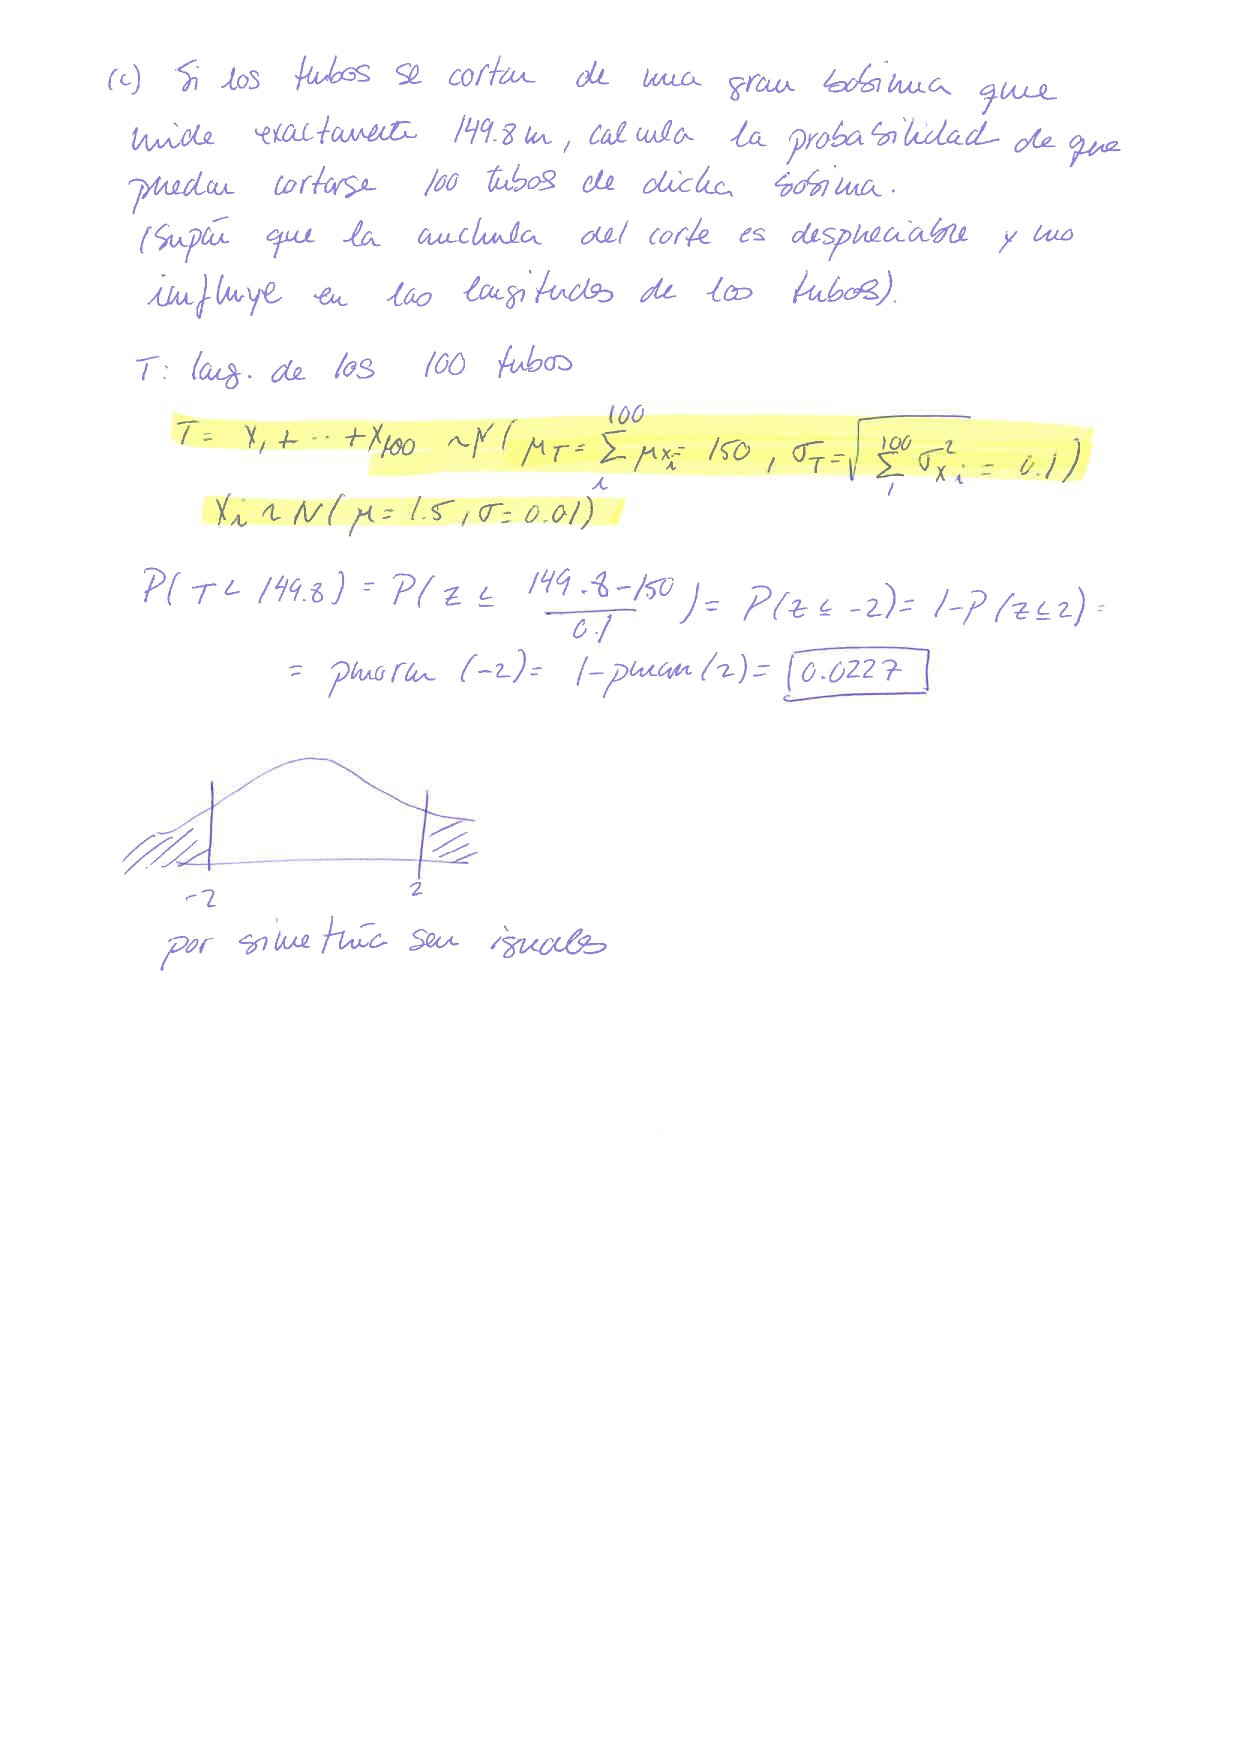 (c) Si los tubos se cortan de una gran bobina que
mide exactamente 149.8 m, calcula la probabilidad de que
puedan cortarse 100 tubos de dicha bobina.
(Supón que la anchura del corte es despreciable y no
influye en las longitudes de los tubos).
T: long. de los 100 tubos
T = X₁ + ··· + X₁₀₀ ~ N( μ_T = ∑_i^100 μ_{X_i} = 150 , σ_T = √(∑_1^100 σ²_{X_i}) = 0.1 )
X_i ~ N( μ = 1.5 , σ = 0.01)
P( T ≤ 149.8 ) = P( Z ≤ (149.8 - 150)/0.1 ) = P(Z ≤ -2) = 1 - P(Z ≤ 2) =
= pnorm (-2) = 1 - pnorm (2) = 0.0227
-2 2
por simetría son iguales